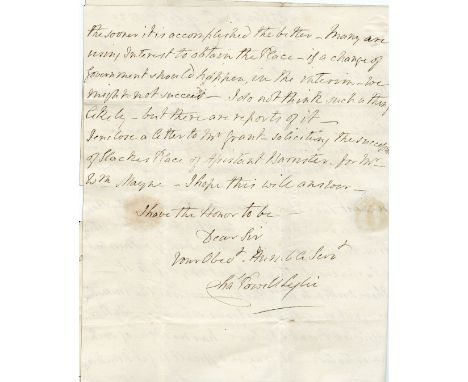 the sooner it is accomplished the better – Many are
using Interest to obtain the Place – if a change of
Government should happen, in the interim – we
might not succeed – I do not think such a thing
likely – but there are reports of it –
I enclose a letter to Mr Grant soliciting the succession
of Slackes Place of Assistant Barrister for Mr
Wm Mayne – I hope this will answer –
I have the Honor to be –
Dear Sir
Your Obedt Humble Servt
Chas Powell Leslie